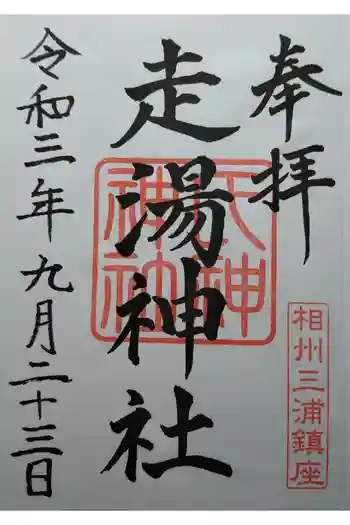 奉拝
相州三浦鎮座
走湯神社
氏神
神社
令和三年九月二十三日